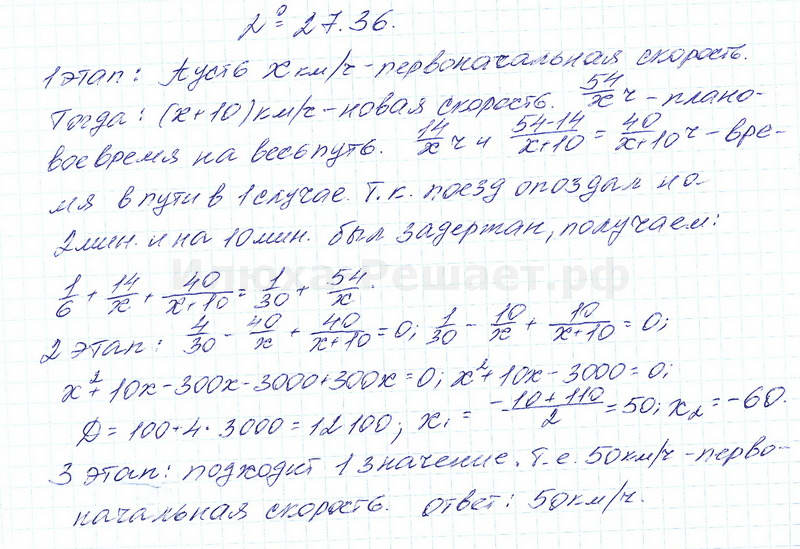 № 27.36.
1 этап: Пусть x км/ч - первоначальная скорость.
Тогда: (x+10) км/ч - новая скорость. 54/x ч - плано-
вое время на весь путь. 14/x ч и (54-14)/(x+10) = 40/(x+10) ч - вре-
мя в пути в 1 случае. Т.к. поезд опоздал на
2 мин. и на 10 мин. был задержан, получаем:
1/6 + 14/x + 40/(x+10) = 1/30 + 54/x.
2 этап: 4/30 - 40/x + 40/(x+10) = 0; 1/30 - 10/x + 10/(x+10) = 0;
x²+10x-300x-3000+300x=0; x²+10x-3000=0;
Д=100+4·3000=12100; x₁ = (-10+110)/2 = 50; x₂=-60.
3 этап: подходит 1 значение. Т.е. 50 км/ч - перво-
начальная скорость. ответ: 50 км/ч.
Илюха-Решает.рф